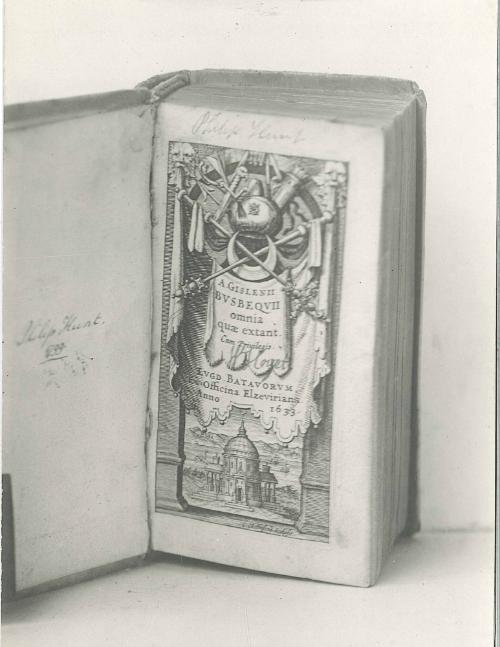 Philip Hunt
Philip Hunt.
A. GISLENII
BVSBEQVII
omnia
quæ extant.
Cum Privilegio.
LVGD. BATAVORVM,
Officina Elzeviriana
Anno 1633